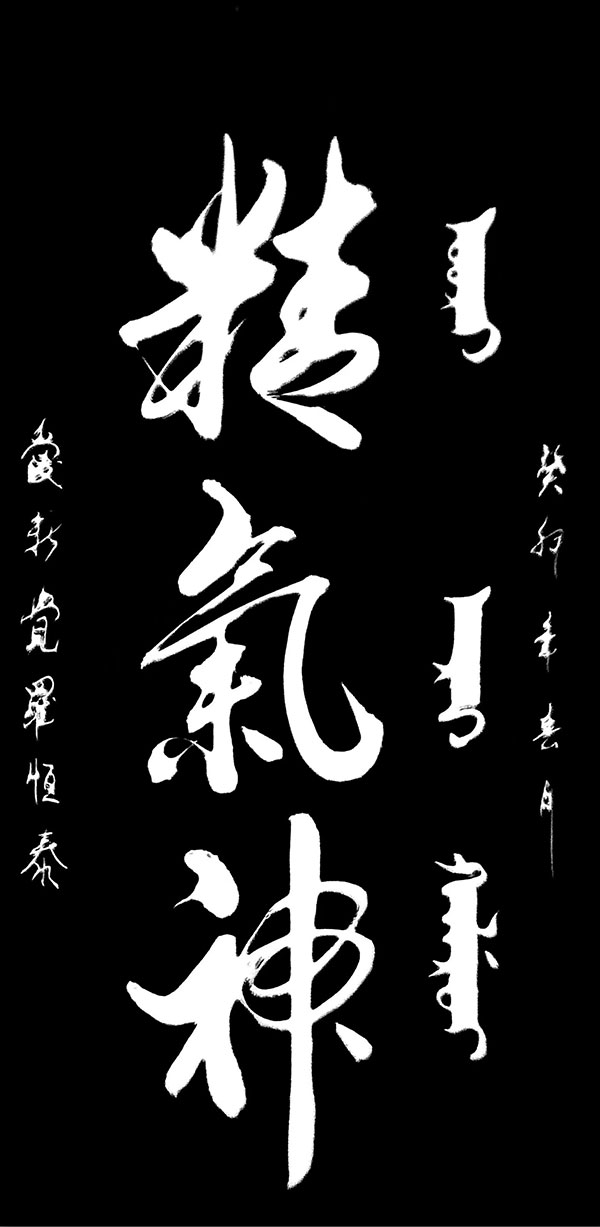 癸卯年春月
精氣神
愛新覚羅恒泰